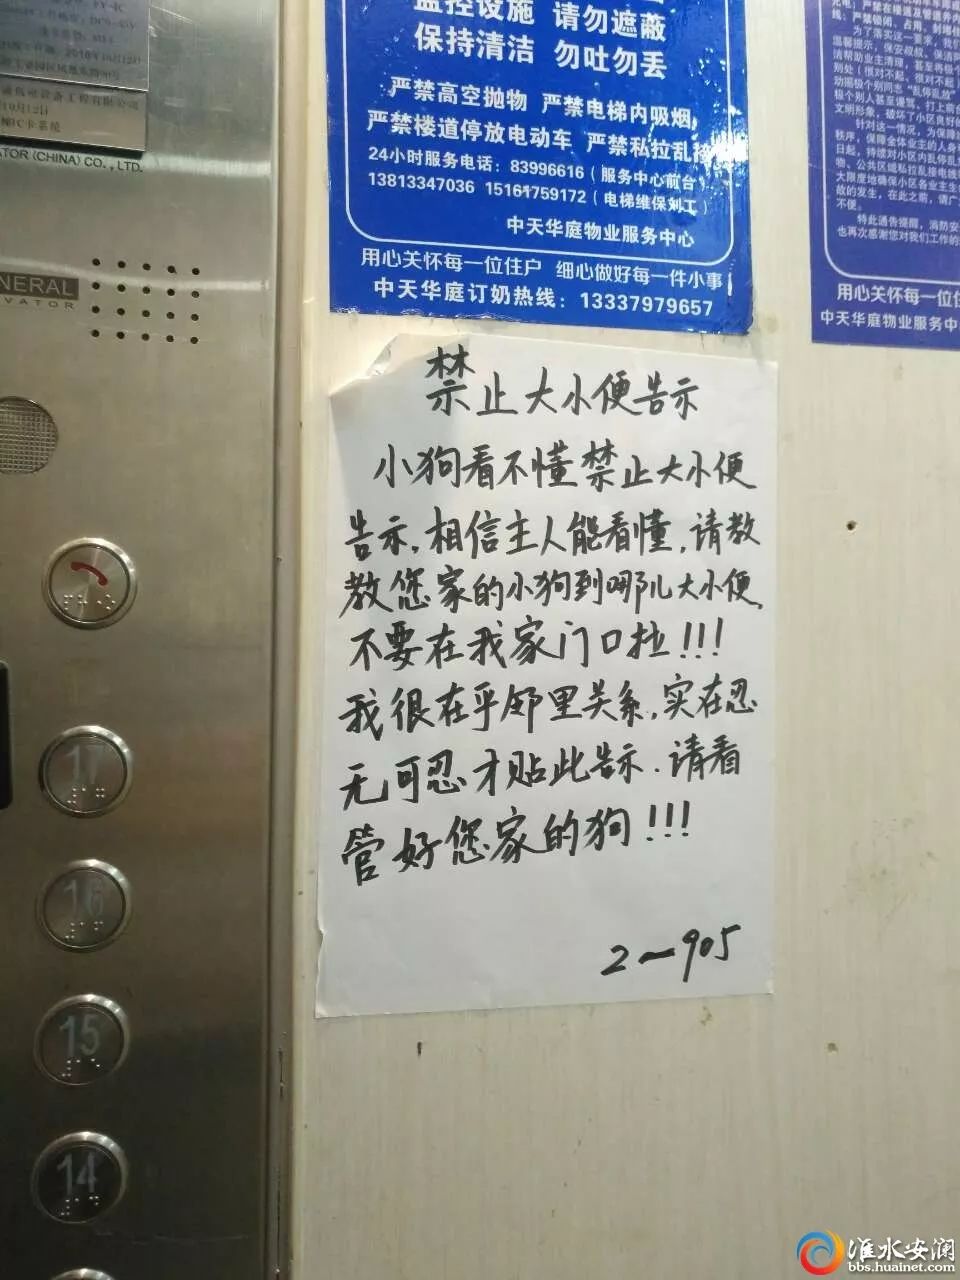 监控设施 请勿遮蔽
保持清洁 勿吐勿丢
严禁高空抛物 严禁电梯内吸烟
严禁楼道停放电动车 严禁私拉乱接
24小时服务电话：83996616（服务中心前台
13813347036 15161759172（电梯维保刘工）
中天华庭物业服务中心
用心关怀每一位住户 细心做好每一件小事
中天华庭订奶热线：13337979657
ATOR (CHINA) CO., LTD.
NERAL
VATOR
17
16
15
14
禁止大小便告示
小狗看不懂禁止大小便
告示，相信主人能看懂，请教
教您家的小狗到哪儿大小便，
不要在我家门口拉！！！
我很在乎邻里关系，实在忍
无可忍才贴此告示．请看
管好您家的狗！！！
2~905
特此通告提醒，消防安
也再次感谢您对我们工作的
用心关怀每一位住
中天华庭物业服务中
淮水安澜
bbs.huainet.com